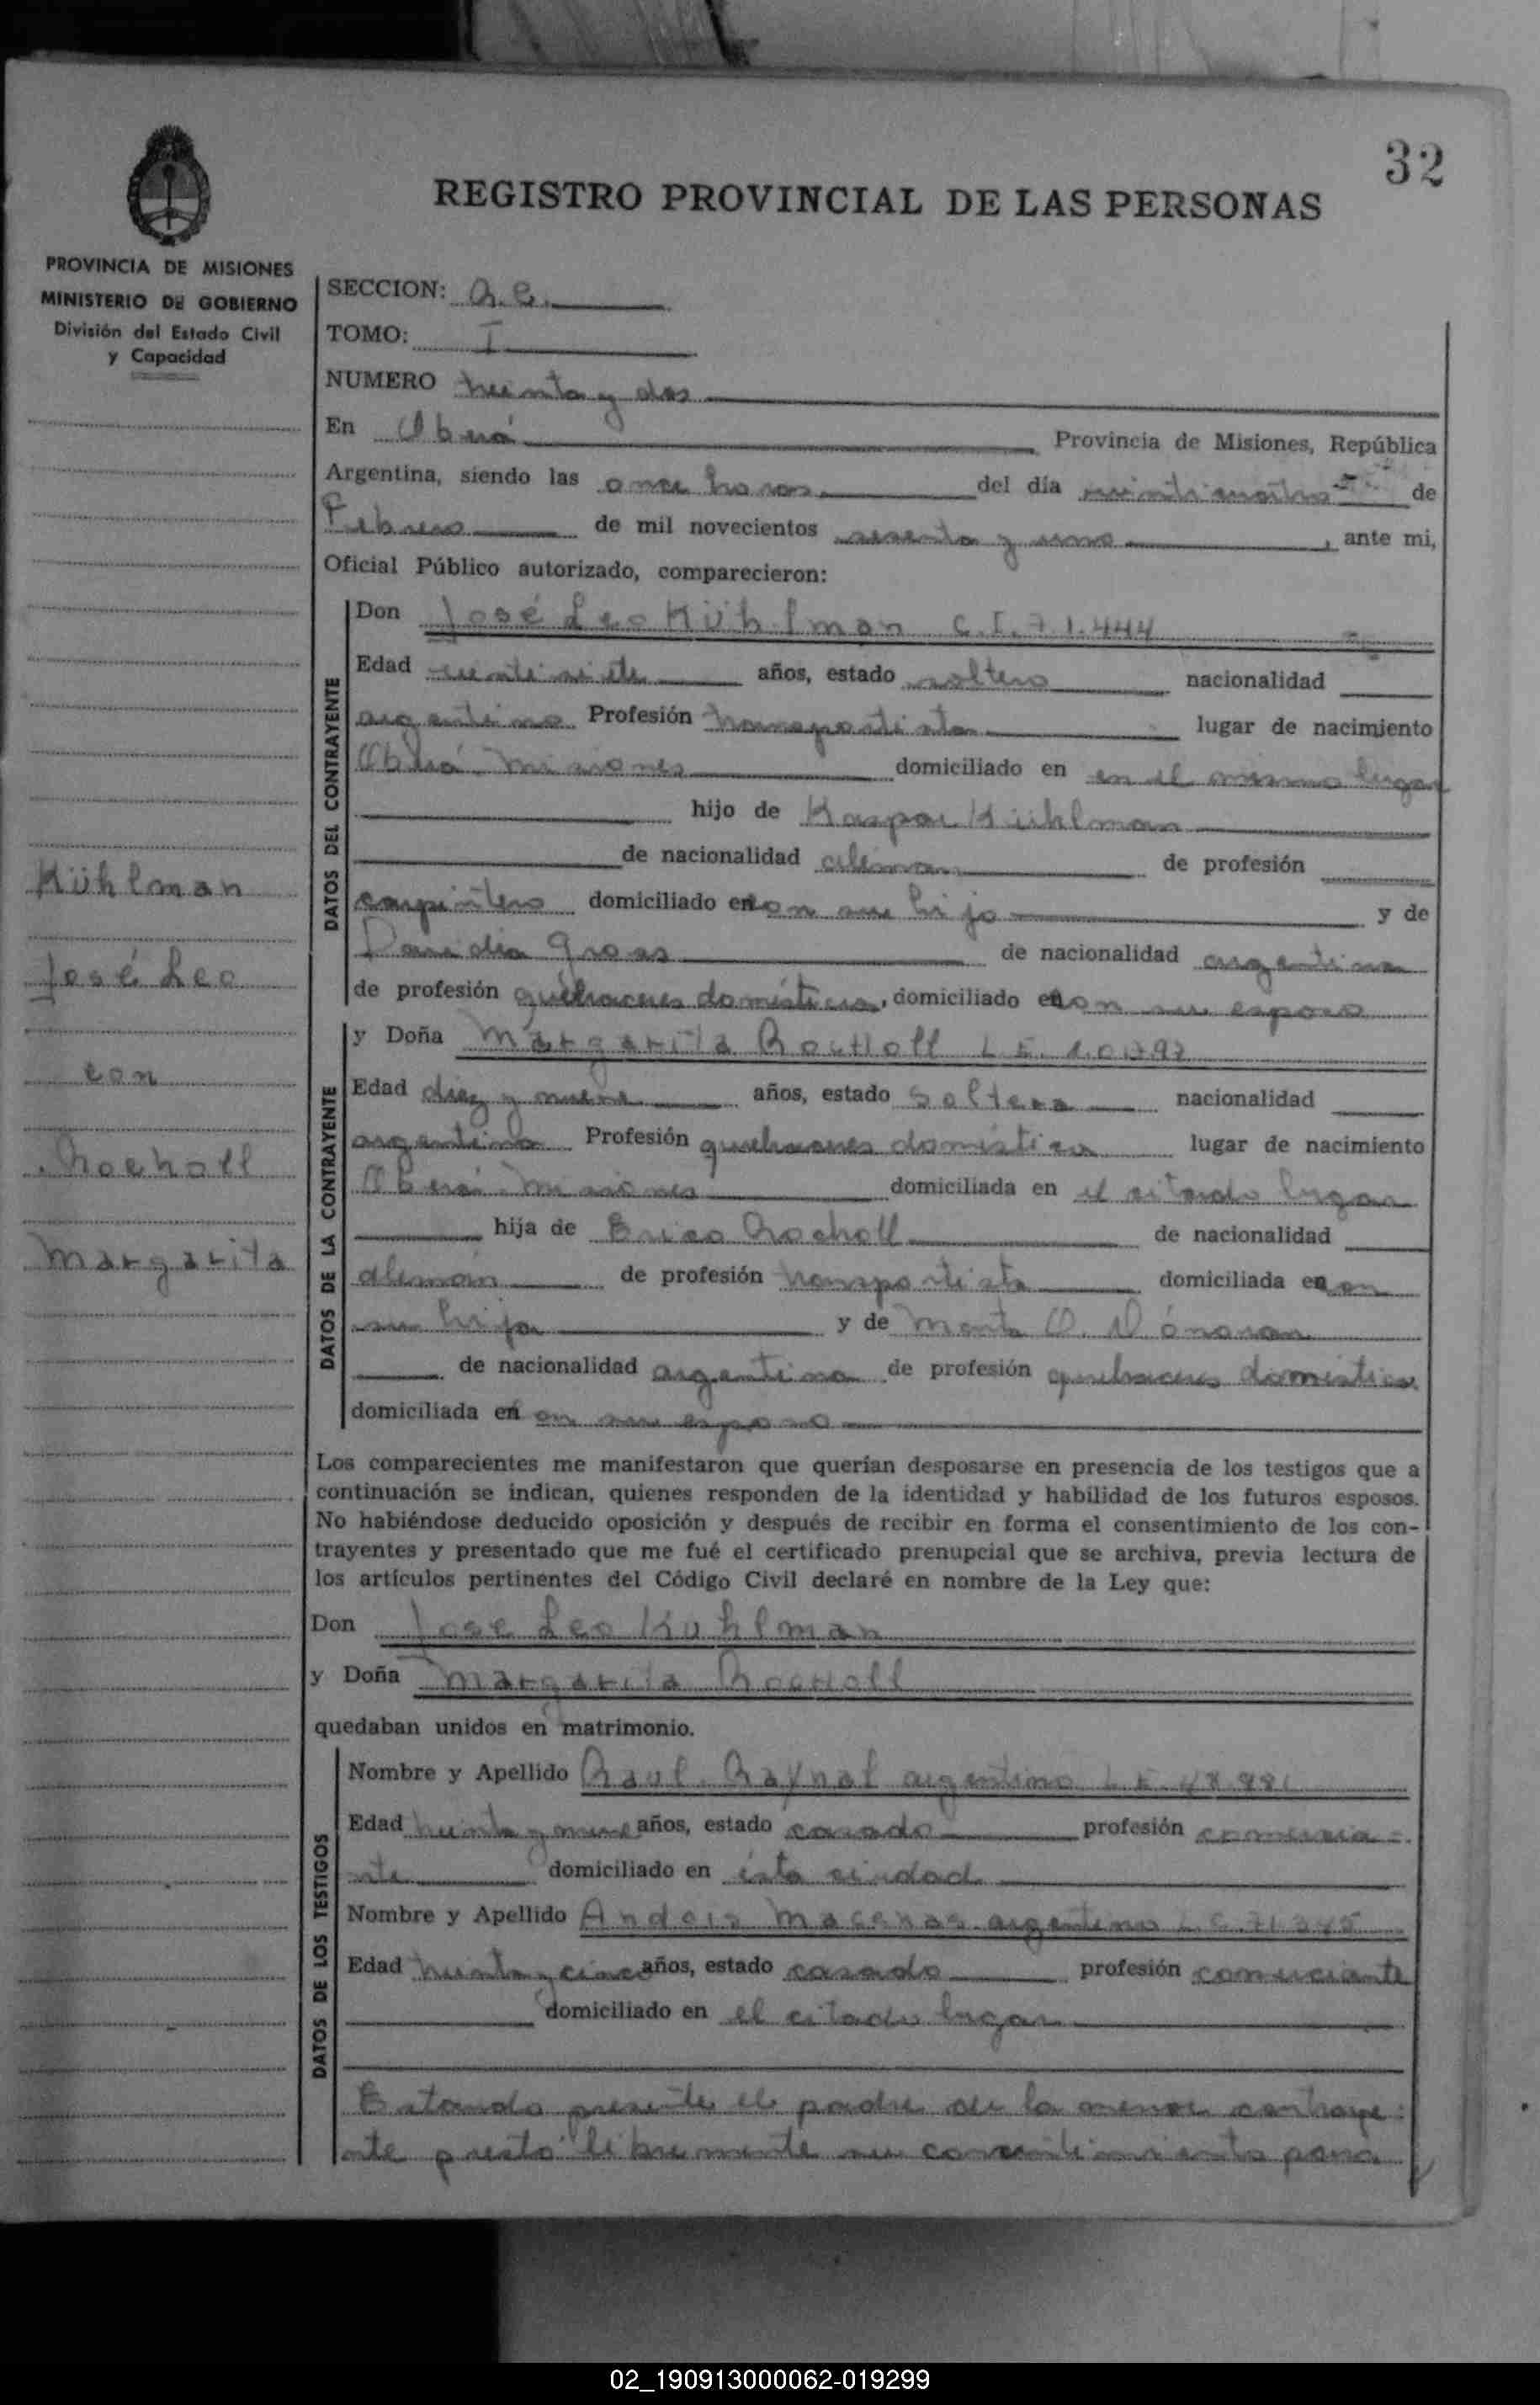 32
REGISTRO PROVINCIAL DE LAS PERSONAS
PROVINCIA DE MISIONES
MINISTERIO DE GOBIERNO
División del Estado Civil
y Capacidad
Kühlman
José Leo
con
Rocholl
Margarita
SECCION:
TOMO: I
NUMERO treinta y dos
En Oberá Provincia de Misiones, República
Argentina, siendo las once horas del día veinticuatro de
Febrero de mil novecientos sesenta y uno, ante mi,
Oficial Público autorizado, comparecieron:
DATOS DEL CONTRAYENTE
Don José Leo Kühlman C.I. 71.444
Edad veintisiete años, estado soltero nacionalidad
argentino Profesión transportista lugar de nacimiento
Oberá-Misiones domiciliado en en el mismo lugar
hijo de Kaspar Kühlman
de nacionalidad alemán de profesión
carpintero domiciliado con su hijo y de
Gross de nacionalidad argentina
de profesión quehaceres domésticos, domiciliado con su esposo
DATOS DE LA CONTRAYENTE
y Doña Margarita Rocholl
Edad diez y nueve años, estado soltera nacionalidad
argentina Profesión quehaceres domésticos lugar de nacimiento
Oberá-Misiones domiciliada en el citado lugar
hija de Erico Rocholl de nacionalidad
alemán de profesión transportista domiciliada con
su hija y de
de nacionalidad argentina de profesión quehaceres domésticos
domiciliada con su esposo
Los comparecientes me manifestaron que querían desposarse en presencia de los testigos que a
continuación se indican, quienes responden de la identidad y habilidad de los futuros esposos.
No habiéndose deducido oposición y después de recibir en forma el consentimiento de los con-
trayentes y presentado que me fué el certificado prenupcial que se archiva, previa lectura de
los artículos pertinentes del Código Civil declaré en nombre de la Ley que:
Don José Leo Kühlman
y Doña Margarita Rocholl
quedaban unidos en matrimonio.
DATOS DE LOS TESTIGOS
Nombre y Apellido Raul Raynal argentino L.E.
Edad treinta y nueve años, estado casado profesión comercia-
nte domiciliado en ésta ciudad
Nombre y Apellido argentino
Edad treinta y cinco años, estado casado profesión comerciante
domiciliado en el citado lugar
Estando presente el padre de la menor contraye-
nte prestó libremente su consentimiento para
02_190913000062-019299